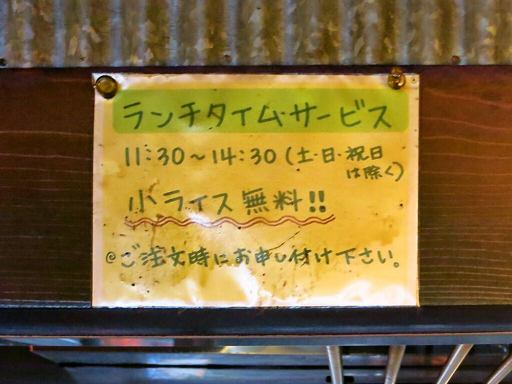 ランチタイム・サービス
11:30～14:30(土・日・祝日
は除く)
小ライス無料!!
◎ご注文時にお申し付け下さい。